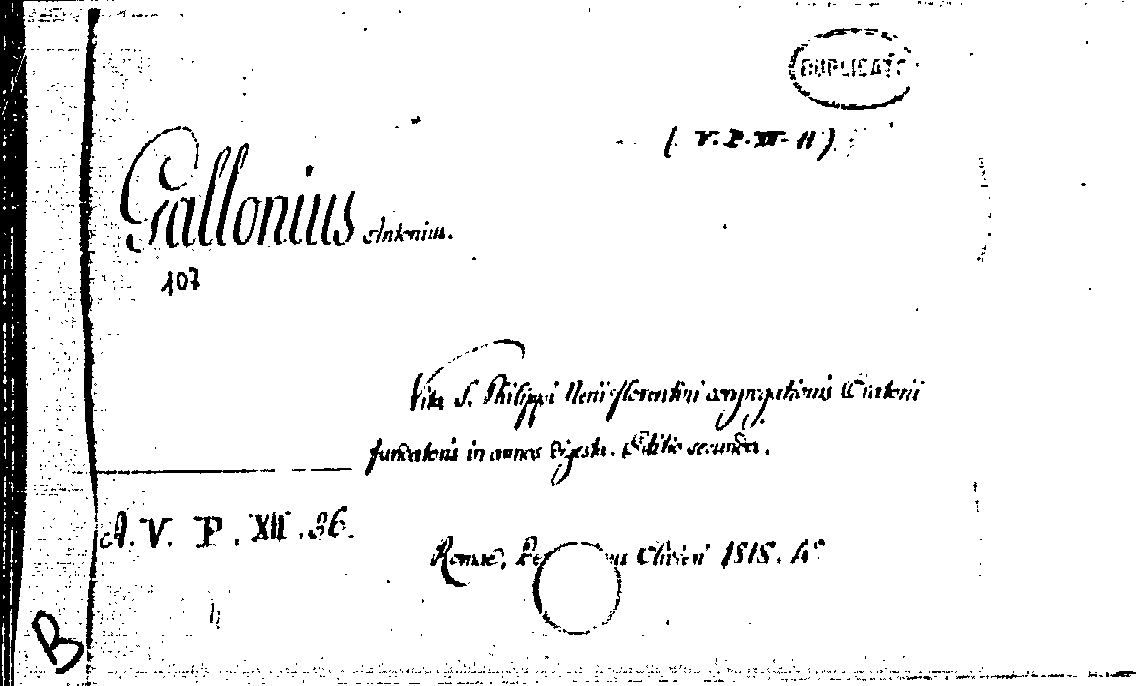 DUPLICAT
( V. P. XII. 11 )
Gallonius Antonius.
107
Vita S. Philippi Nerii florentini congregationis Oratorii
fundatoris in annos digesta. Editio secunda.
A. V. P. XII. 36.
Romae, 1818. 4°
B